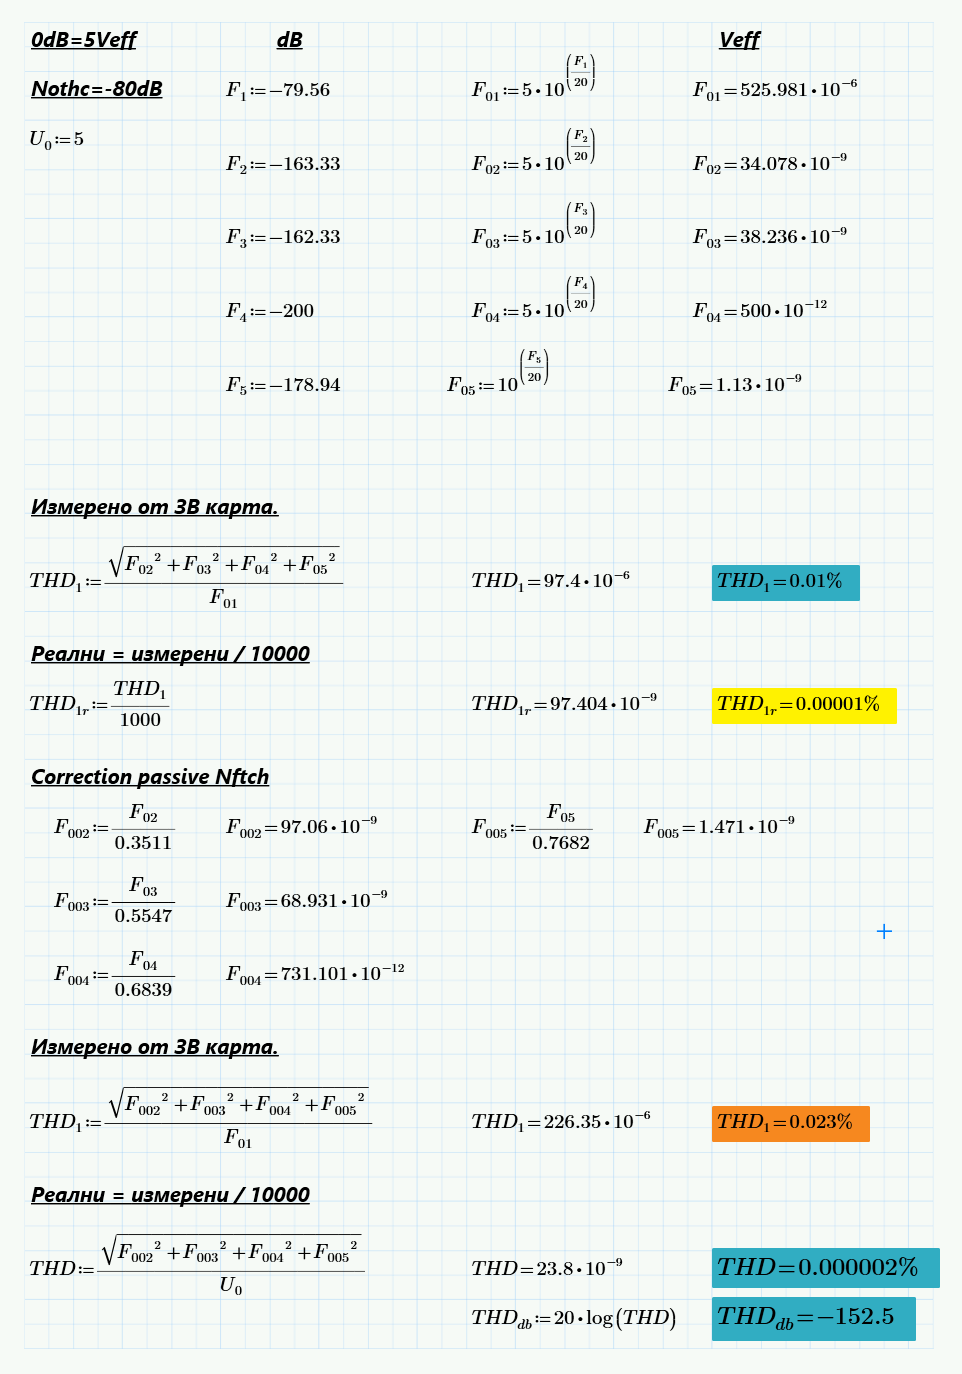 0dB=5Veff dB Veff
Nothc=-80dB F₁:=−79.56 F₀₁:=5•10^(F₁/20) F₀₁=525.981•10⁻⁶
U₀:=5
F₂:=−163.33 F₀₂:=5•10^(F₂/20) F₀₂=34.078•10⁻⁹
F₃:=−162.33 F₀₃:=5•10^(F₃/20) F₀₃=38.236•10⁻⁹
F₄:=−200 F₀₄:=5•10^(F₄/20) F₀₄=500•10⁻¹²
F₅:=−178.94 F₀₅:=10^(F₅/20) F₀₅=1.13•10⁻⁹
Измерено от ЗВ карта.
THD₁:=√(F₀₂²+F₀₃²+F₀₄²+F₀₅²)/F₀₁ THD₁=97.4•10⁻⁶ THD₁=0.01%
Реални = измерени / 10000
THD₁ᵣ:=THD₁/1000 THD₁ᵣ=97.404•10⁻⁹ THD₁ᵣ=0.00001%
Correction passive Nftch
F₀₀₂:=F₀₂/0.3511 F₀₀₂=97.06•10⁻⁹ F₀₀₅:=F₀₅/0.7682 F₀₀₅=1.471•10⁻⁹
F₀₀₃:=F₀₃/0.5547 F₀₀₃=68.931•10⁻⁹
F₀₀₄:=F₀₄/0.6839 F₀₀₄=731.101•10⁻¹²
Измерено от ЗВ карта.
THD₁:=√(F₀₀₂²+F₀₀₃²+F₀₀₄²+F₀₀₅²)/F₀₁ THD₁=226.35•10⁻⁶ THD₁=0.023%
Реални = измерени / 10000
THD:=√(F₀₀₂²+F₀₀₃²+F₀₀₄²+F₀₀₅²)/U₀ THD=23.8•10⁻⁹ THD=0.000002%
THD_db:=20•log(THD) THD_db=−152.5